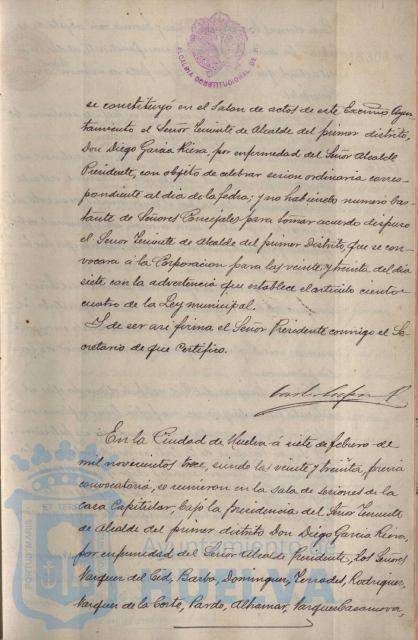 ALCALDIA CONSTITUCIONAL DE
se constituyó en el Salon de actos de este Excmo Ayun
tamiento el Señor Teniente de Alcalde del primer distrito,
Don Diego Garcia Riera, por enfermedad del Señor Alcalde
Presidente, con objeto de celebrar sesion ordinaria corres-
pondiente al dia de la fecha; y no habiendo numero bas
tante de Señores Concejales para tomar acuerdo dispuso
el Señor Teniente de Alcalde del primer Distrito, que se con
vocara á la Corporacion para las veinte y treinta del dia
siete con la advertencia que establece el articulo ciento
cuatro de la Ley municipal.
Y de ser asi firma el Señor Presidente conmigo el Se-
cretario de que certifico.
En la Ciudad de Huelva á siete de febrero de
mil novecientos trece, siendo las veinte y treinta, previa
convocatoria, se reunieron en la sala de sesiones de la
casa Capitular, bajo la presidencia del Señor Teniente
de Alcalde del primer distrito Don Diego Garcia Riera,
por enfermedad del Señor Alcalde Presidente, los Señores
Vazquez del Cid, Barba, Dominguez, Terrades, Rodriguez,
Vazquez de la Corte, Pardo, Alhamar, Vazquez Casanova,
PORTUS MARIS ET TERRAE
Ayuntamiento de
HUELVA